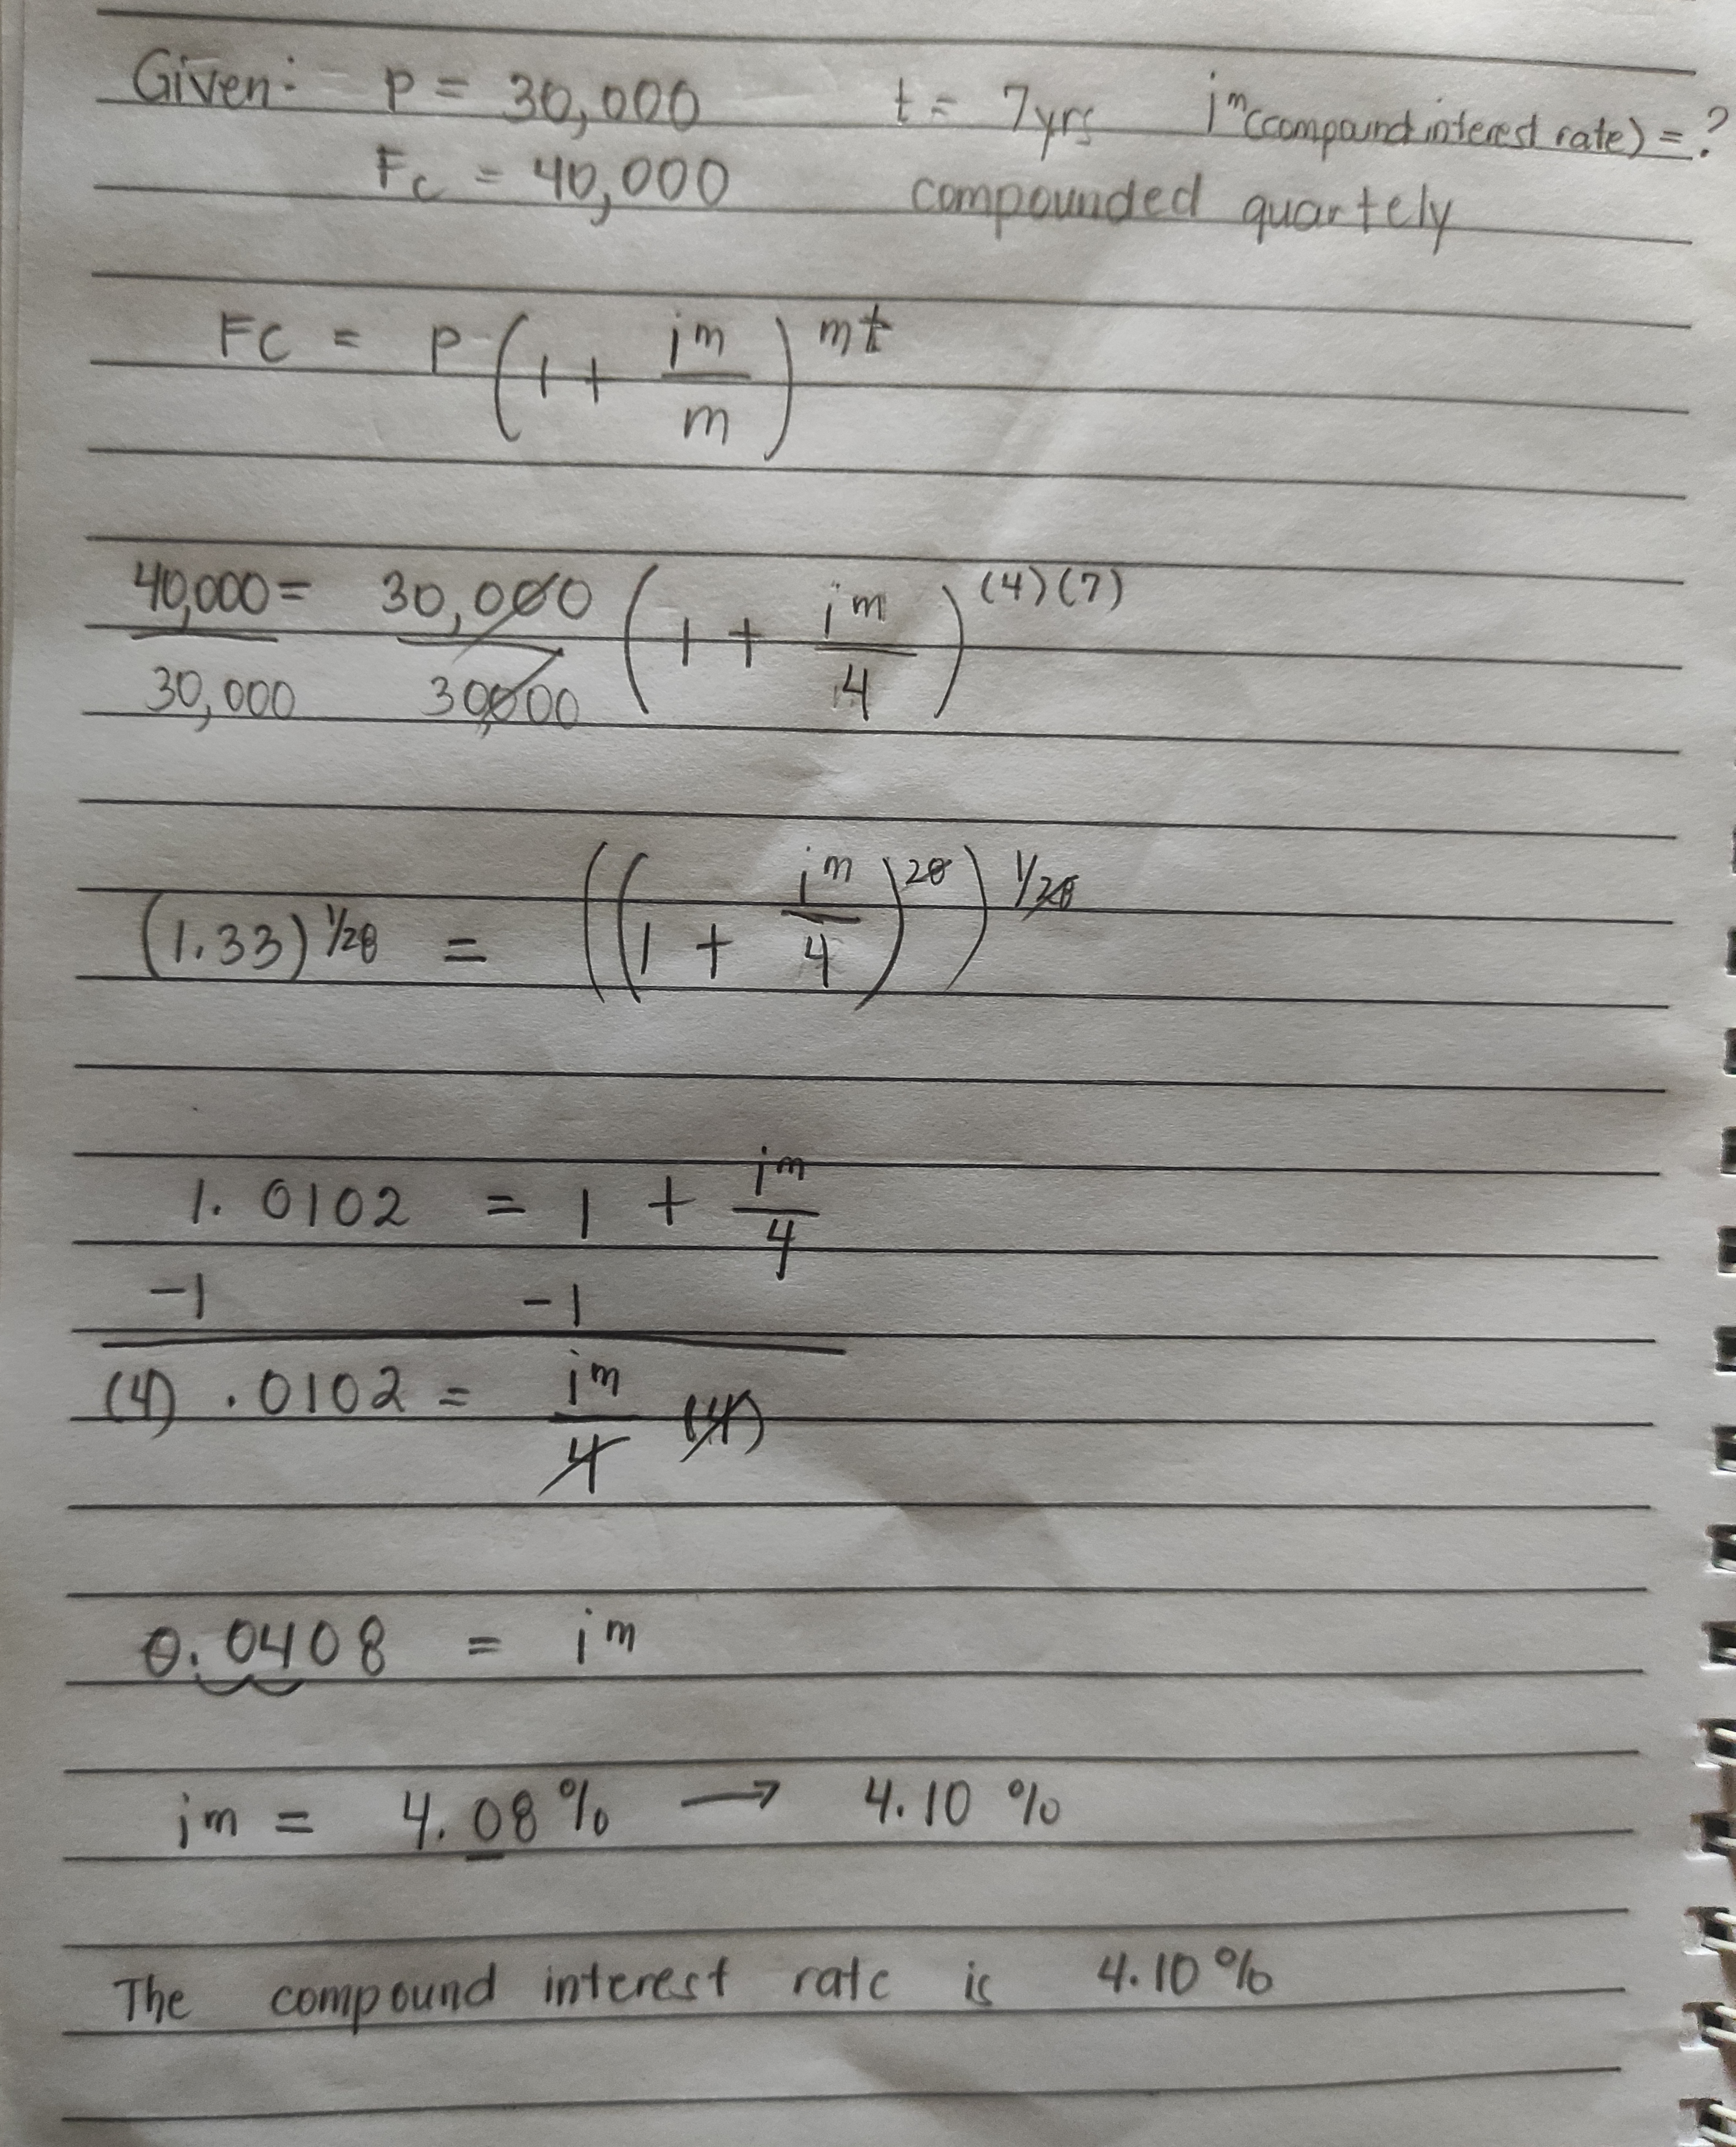 Given: P = 30,000 t = 7yrs i^m (compound interest rate) = ?
Fc = 40,000 compounded quartely
FC = P (1 + i^m/m)^mt
40,000/30,000 = 30,000/30000 (1 + i^m/4)^(4)(7)
(1.33)^1/28 = ((1 + i^m/4)^28)^1/28
1.0102 = 1 + i^m/4
-1 -1
(4) .0102 = i^m/4 (4)
0.0408 = i^m
im = 4.08% → 4.10 %
The compound interest rate is 4.10%